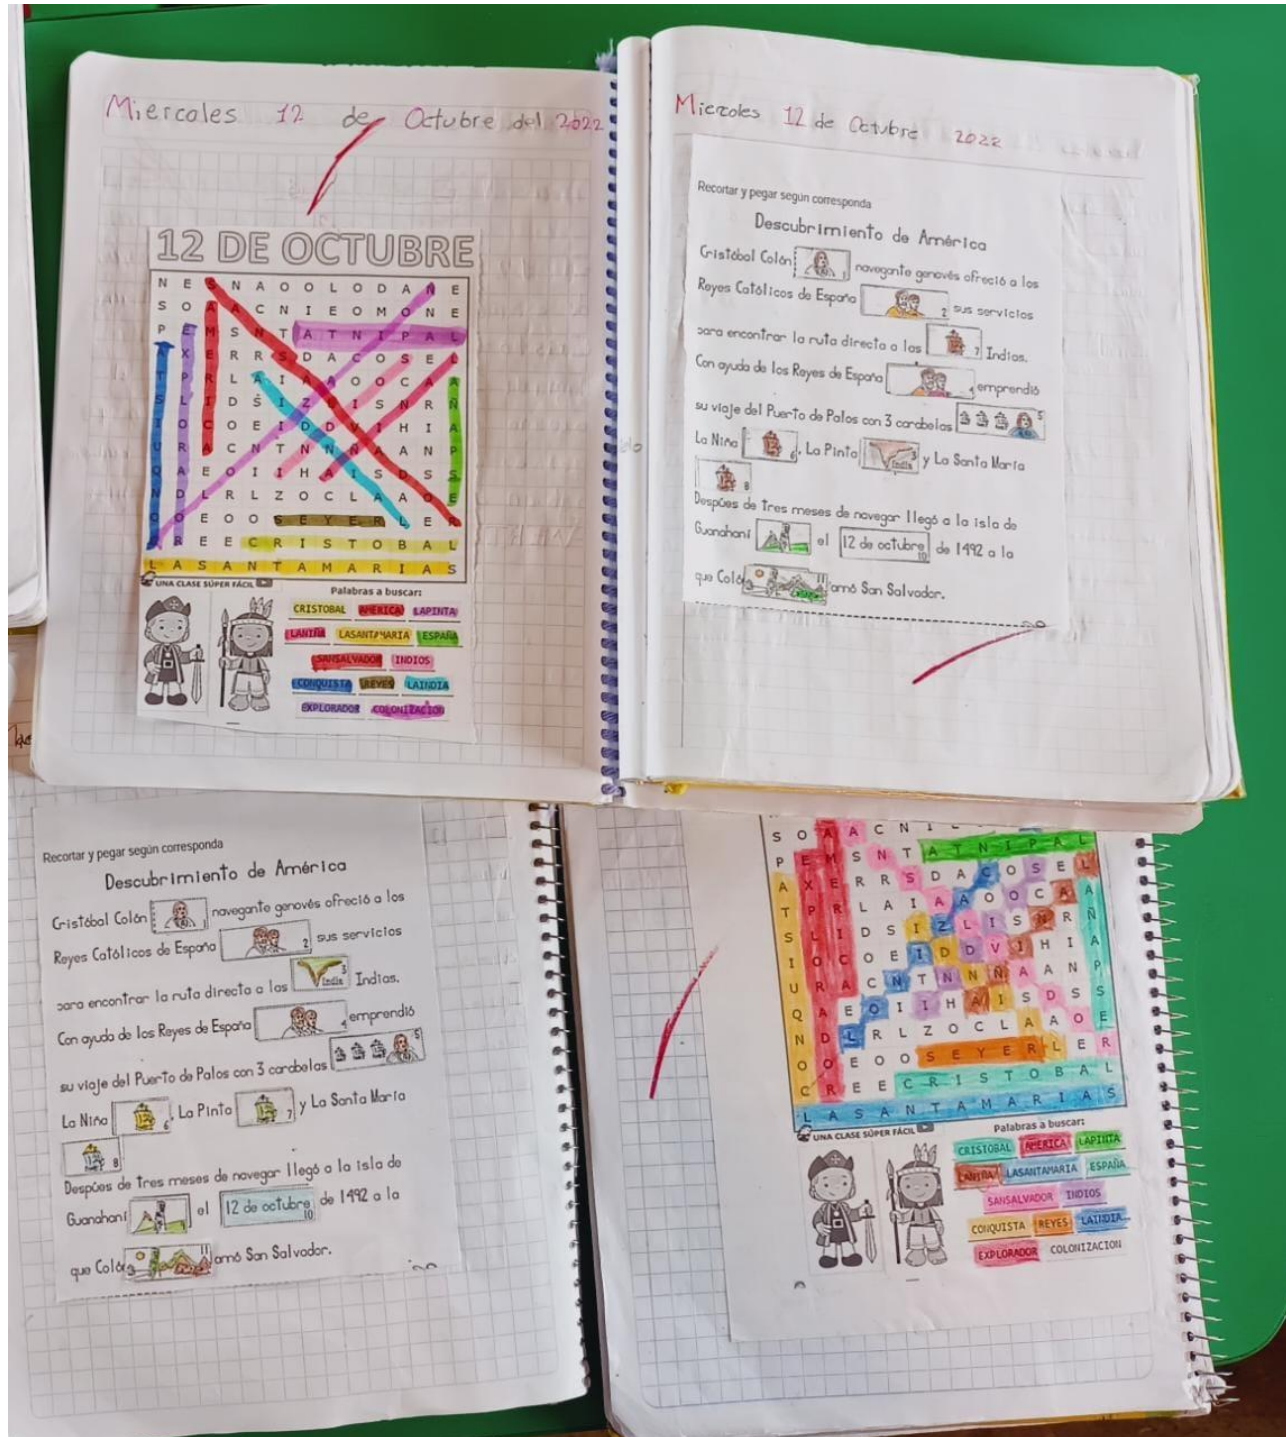 Miercoles 12 de Octubre del 2022
12 DE OCTUBRE
N E S N A O O L O D A N E
S O A A C N I E O M O N E
P E M S N T A T N I P A L
A X E R R S D A C O S E L
T P R L A I A A O O C A A
S L I D S I Z L I S N R Ñ
I O C O E I D D V I H I A
U R A C N T N N Ñ A A N P
Q A E O I I H A I S D S S
N D L R L Z O C L A A O E
O O E O O S E Y E R L E R
C R E E C R I S T O B A L
L A S A N T A M A R I A S
UNA CLASE SÚPER FÁCIL
Palabras a buscar:
CRISTOBAL AMERICA LAPINTA
LANIÑA LASANTAMARIA ESPAÑA
SANSALVADOR INDIOS
CONQUISTA REYES LAINDIA
EXPLORADOR COLONIZACION
Miercoles 12 de Octubre 2022
Recortar y pegar según corresponda
Descubrimiento de América
Cristóbal Colón 1 navegante genovés ofreció a los
Reyes Católicos de España 2 sus servicios
para encontrar la ruta directa a las 7 Indias.
Con ayuda de los Reyes de España 4 emprendió
su viaje del Puerto de Palos con 3 carabelas 5
La Niña 6, La Pinta India 3 y La Santa María
8
Despúes de tres meses de navegar llegó a la isla de
Guanahaní el 12 de octubre 10 de 1492 a la
que Coló 11 amó San Salvador.
Recortar y pegar según corresponda
Descubrimiento de América
Cristóbal Colón 1 navegante genovés ofreció a los
Reyes Católicos de España 2 sus servicios
para encontrar la ruta directa a las India 3 Indias.
Con ayuda de los Reyes de España 4 emprendió
su viaje del Puerto de Palos con 3 carabelas 5
La Niña 6, La Pinta 7 y La Santa María
8
Despúes de tres meses de navegar llegó a la isla de
Guanahaní el 12 de octubre 10 de 1492 a la
que Coló 11 amó San Salvador.
S O A A C N I
P E M S N T A T N I P A L
A X E R R S D A C O S E L
T P R L A I A A O O C A A
S L I D S I Z L I S N R Ñ
I O C O E I D D V I H I A
U R A C N T N N Ñ A A N P
Q A E O I I H A I S D S S
N D L R L Z O C L A A O E
O O E O O S E Y E R L E R
C R E E C R I S T O B A L
L A S A N T A M A R I A S
UNA CLASE SÚPER FÁCIL
Palabras a buscar:
CRISTOBAL AMERICA LAPINTA
LANIÑA LASANTAMARIA ESPAÑA
SANSALVADOR INDIOS
CONQUISTA REYES LAINDIA
EXPLORADOR COLONIZACION